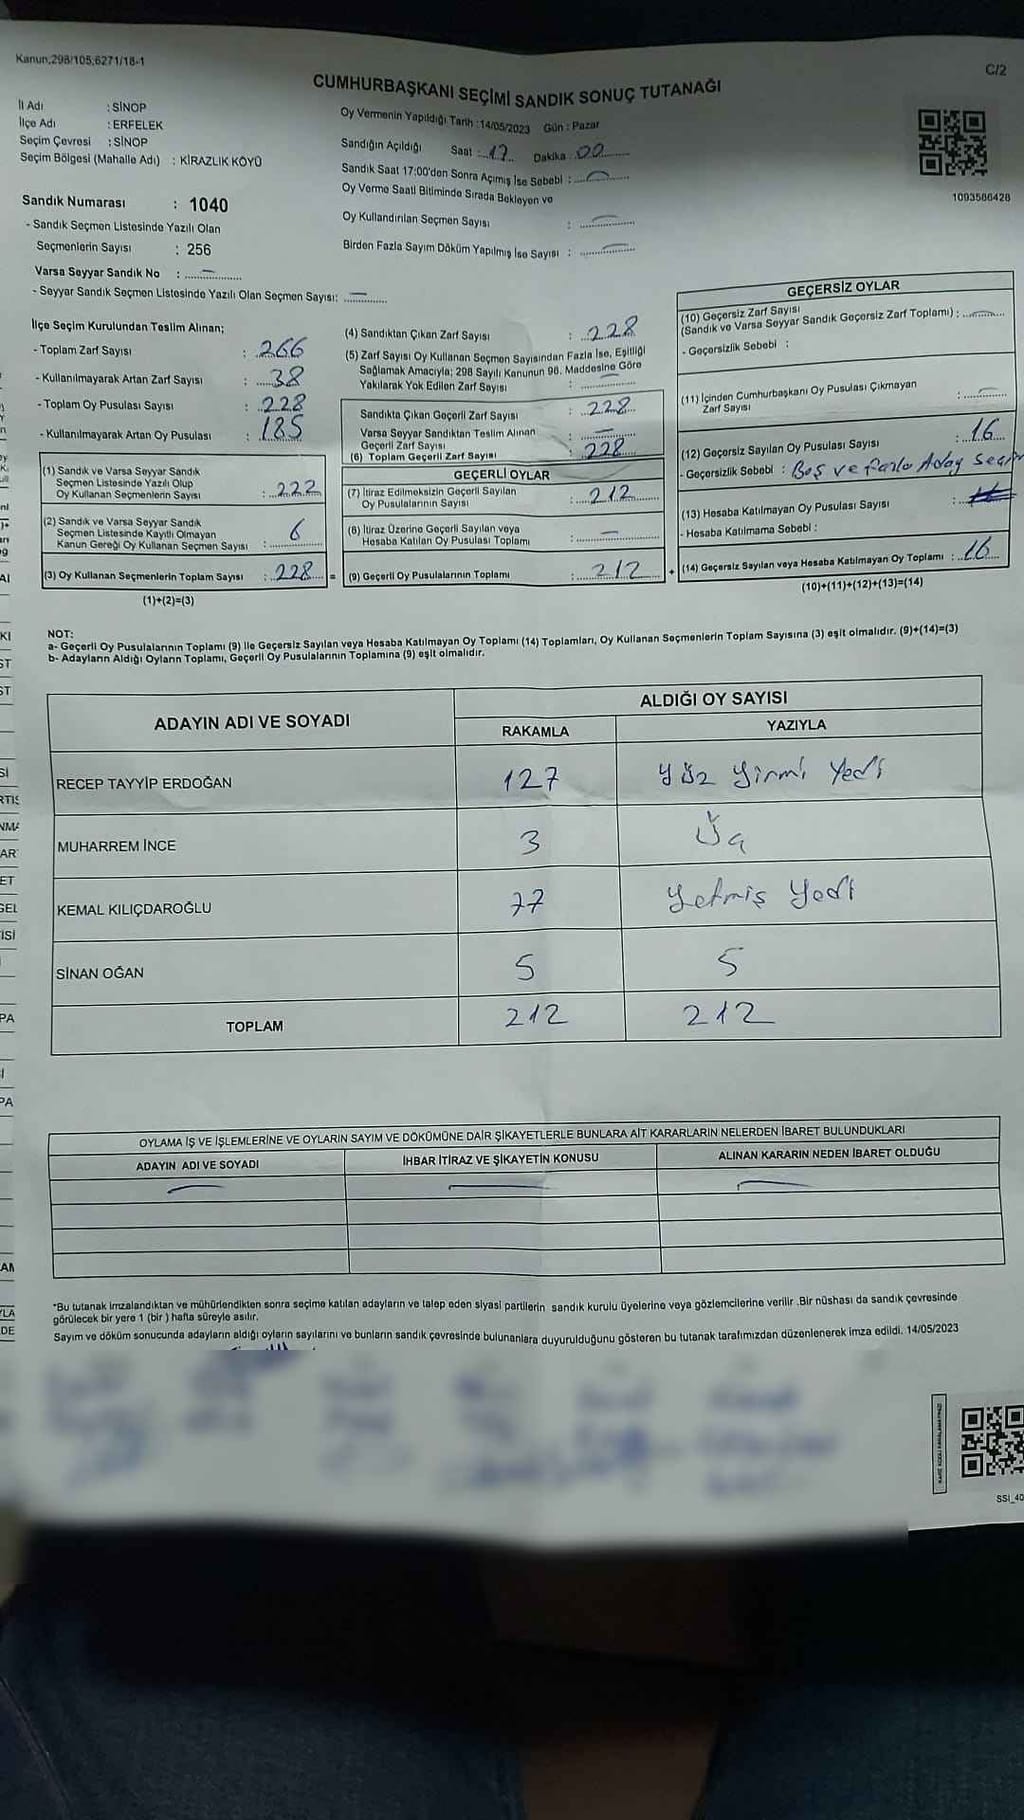 Kanun,298/105;6271/18-1
C/2
CUMHURBAŞKANI SEÇİMİ SANDIK SONUÇ TUTANAĞI
İl Adı : SİNOP
İlçe Adı : ERFELEK
Seçim Çevresi : SİNOP
Seçim Bölgesi (Mahalle Adı) : KİRAZLIK KÖYÜ
Oy Vermenin Yapıldığı Tarih : 14/05/2023 Gün : Pazar
Sandığın Açıldığı Saat : 17 Dakika : 00
Sandık Saat 17:00'den Sonra Açımış İse Sebebi : —
Oy Verme Saati Bitiminde Sırada Bekleyen ve
Oy Kullandırılan Seçmen Sayısı : —
Birden Fazla Sayım Döküm Yapılmış İse Sayısı : —
1093586428
Sandık Numarası : 1040
- Sandık Seçmen Listesinde Yazılı Olan
Seçmenlerin Sayısı : 256
Varsa Seyyar Sandık No : —
- Seyyar Sandık Seçmen Listesinde Yazılı Olan Seçmen Sayısı: —
İlçe Seçim Kurulundan Teslim Alınan;
- Toplam Zarf Sayısı : 266
- Kullanılmayarak Artan Zarf Sayısı : 38
- Toplam Oy Pusulası Sayısı : 228
- Kullanılmayarak Artan Oy Pusulası : 185
(1) Sandık ve Varsa Seyyar Sandık
Seçmen Listesinde Yazılı Olup
Oy Kullanan Seçmenlerin Sayısı : 222
(2) Sandık ve Varsa Seyyar Sandık
Seçmen Listesinde Kayıtlı Olmayan
Kanun Gereği Oy Kullanan Seçmen Sayısı : 6
(3) Oy Kullanan Seçmenlerin Toplam Sayısı : 228 =
(1)+(2)=(3)
(4) Sandıktan Çıkan Zarf Sayısı : 228
(5) Zarf Sayısı Oy Kullanan Seçmen Sayısından Fazla İse, Eşitliği
Sağlamak Amacıyla; 298 Sayılı Kanunun 98. Maddesine Göre
Yakılarak Yok Edilen Zarf Sayısı : —
Sandıkta Çıkan Geçerli Zarf Sayısı : 228
Varsa Seyyar Sandıktan Teslim Alınan
Geçerli Zarf Sayısı : —
(6) Toplam Geçerli Zarf Sayısı : 228
GEÇERLİ OYLAR
(7) İtiraz Edilmeksizin Geçerli Sayılan
Oy Pusulalarının Sayısı : 212
(8) İtiraz Üzerine Geçerli Sayılan veya
Hesaba Katılan Oy Pusulası Toplamı : —
(9) Geçerli Oy Pusulalarının Toplamı : 212 +
GEÇERSİZ OYLAR
(10) Geçersiz Zarf Sayısı
(Sandık ve Varsa Seyyar Sandık Geçersiz Zarf Toplamı) : —
- Geçersizlik Sebebi :
(11) İçinden Cumhurbaşkanı Oy Pusulası Çıkmayan
Zarf Sayısı : —
(12) Geçersiz Sayılan Oy Pusulası Sayısı : 16
- Geçersizlik Sebebi : Boş ve fazla Aday
(13) Hesaba Katılmayan Oy Pusulası Sayısı :
- Hesaba Katılmama Sebebi :
(14) Geçersiz Sayılan veya Hesaba Katılmayan Oy Toplamı : 16
(10)+(11)+(12)+(13)=(14)
NOT:
a- Geçerli Oy Pusulalarının Toplamı (9) ile Geçersiz Sayılan veya Hesaba Katılmayan Oy Toplamı (14) Toplamları, Oy Kullanan Seçmenlerin Toplam Sayısına (3) eşit olmalıdır. (9)+(14)=(3)
b- Adayların Aldığı Oyların Toplamı, Geçerli Oy Pusulalarının Toplamına (9) eşit olmalıdır.
ADAYIN ADI VE SOYADI
ALDIĞI OY SAYISI
RAKAMLA YAZIYLA
RECEP TAYYİP ERDOĞAN 127 Yüz Yirmi Yedi
MUHARREM İNCE 3 Üç
KEMAL KILIÇDAROĞLU 77 Yetmiş Yedi
SİNAN OĞAN 5 5
TOPLAM 212 212
OYLAMA İŞ VE İŞLEMLERİNE VE OYLARIN SAYIM VE DÖKÜMÜNE DAİR ŞİKAYETLERLE BUNLARA AİT KARARLARIN NELERDEN İBARET BULUNDUKLARI
ADAYIN ADI VE SOYADI İHBAR İTİRAZ VE ŞİKAYETİN KONUSU ALINAN KARARIN NEDEN İBARET OLDUĞU
— — —
*Bu tutanak imzalandıktan ve mühürlendikten sonra seçime katılan adayların ve talep eden siyasi partilerin sandık kurulu üyelerine veya gözlemcilerine verilir .Bir nüshası da sandık çevresinde
görülecek bir yere 1 (bir ) hafta süreyle asılır.
Sayım ve döküm sonucunda adayların aldığı oyların sayılarını ve bunların sandık çevresinde bulunanlara duyurulduğunu gösteren bu tutanak tarafımızdan düzenlenerek imza edildi. 14/05/2023
SSI_40